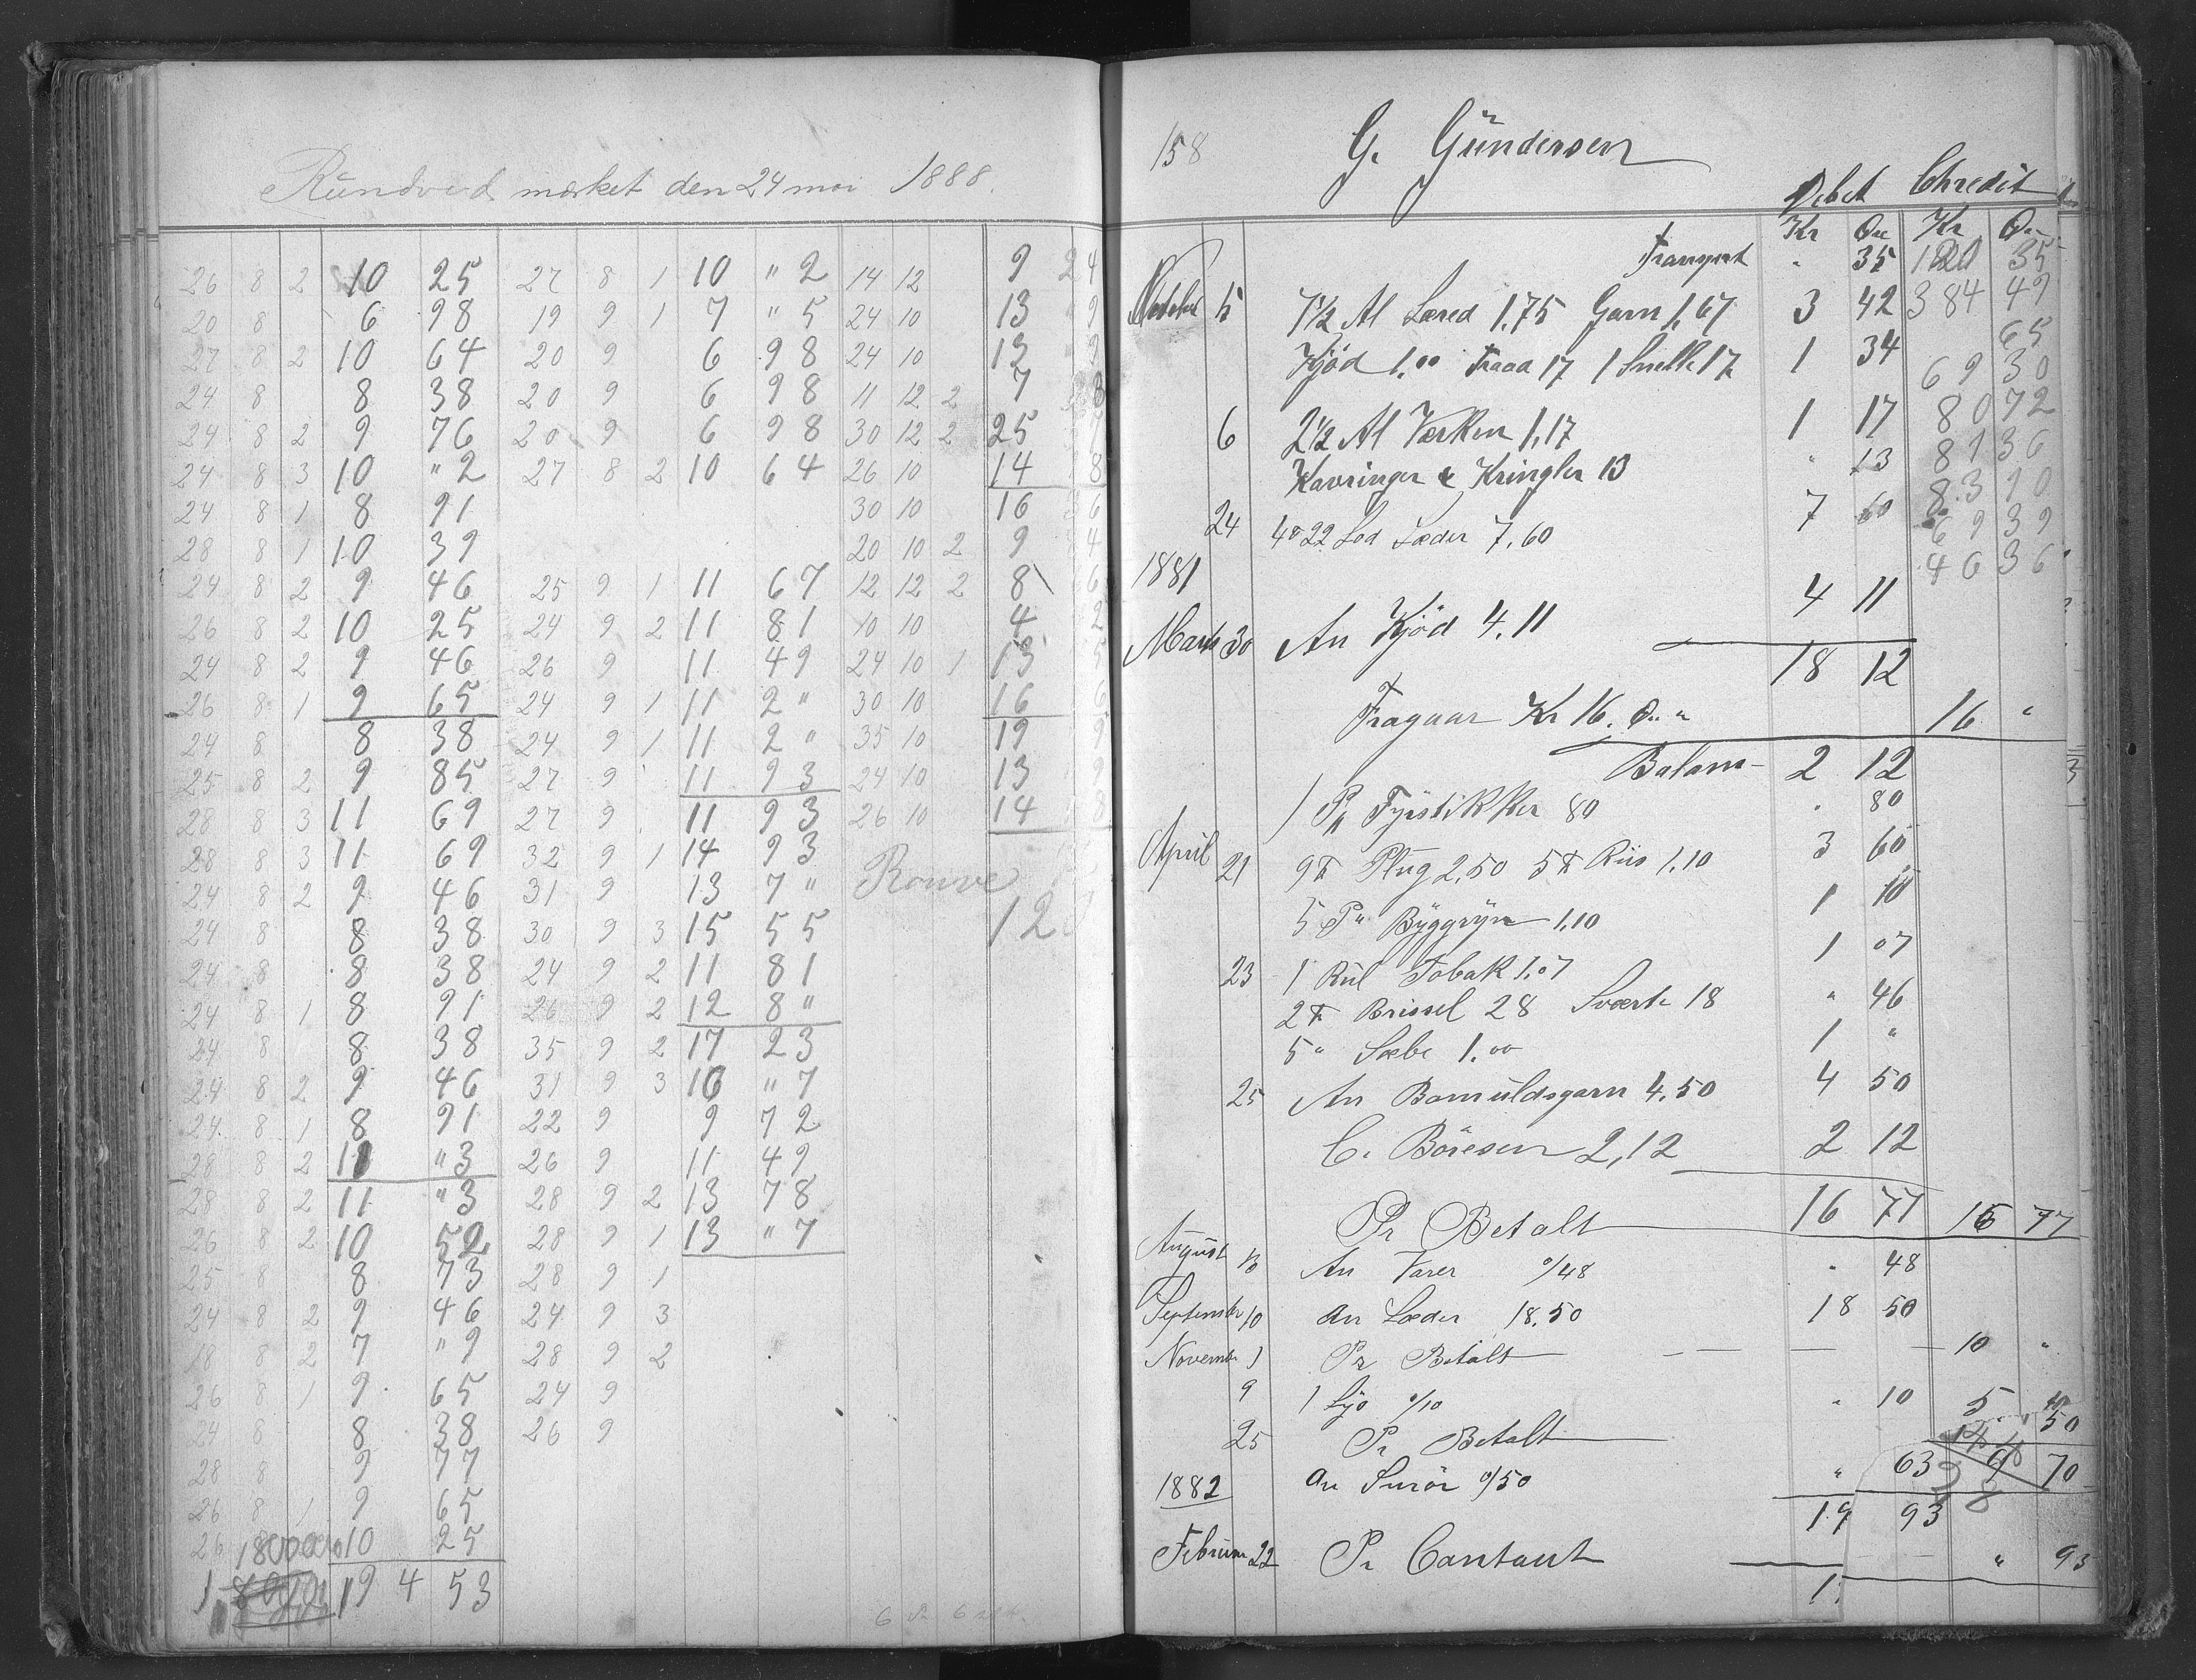 Rundved mærket den 24 mai 1888.
26 8 2 10 25 27 8 1 10 " 2 14 12 9 24
20 8 6 98 19 9 1 7 " 5 24 10 13 9
27 8 2 10 64 20 9 6 98 24 10 13 9
24 8 8 38 20 9 6 98 11 12 2 7 8
24 8 2 9 76 20 9 6 98 30 12 2 25
24 8 3 10 " 2 27 8 2 10 64 26 10 14 8
24 8 1 8 91 30 10 16 6
28 8 1 10 39 20 10 2 9 4
24 8 2 9 46 25 9 1 11 67 12 12 2 8 6
26 8 2 10 25 24 9 2 11 81 10 10 4 2
24 8 2 9 46 26 9 11 49 24 10 1 13 5
26 8 1 9 65 24 9 1 11 2 " 30 10 16 6
24 8 8 38 24 9 1 11 2 " 35 10 19 9
25 8 2 9 85 27 9 11 93 24 10 13 9
28 8 3 11 69 27 9 11 93 26 10 14 8
28 8 3 11 69 32 9 1 14 93
24 8 2 9 46 31 9 13 7 "
24 8 8 38 30 9 3 15 55 12
24 8 8 38 24 9 2 11 81
24 8 1 8 91 26 9 2 12 8 "
24 8 8 38 35 9 2 17 23
24 8 2 9 46 31 9 3 16 " 7
24 8 1 8 91 22 9 9 72
28 8 2 11 " 3 26 9 11 49
28 8 2 11 " 3 28 9 2 13 78
26 8 2 10 52 28 9 1 13 " 7
25 8 8 73 28 9 1
24 8 2 9 46 24 9 3
18 8 2 7 " 9 28 9 2
26 8 1 9 65 24 9
24 8 8 38 26 9
28 8 9 77
26 8 1 9 65
26 10 25
19 4 53
158
G. Gündersen
Debet Chredit
Kr Øre Kr Øre
Transport " 35 120 35
5 7½ Al Læred 1,75 Garn 1,67 3 42 384 49
65
Kjød 1.00 Traad 17 1 Snelle 17 1 34
69 30
6 2½ Al Værken 1,17 1 17 80 72
Kavringer & Kringler 13 " 13 81 36
83 90
24 4 ℔ 22 Lod Læder 7,60 7 60 69 39
1881 46 36
Marts 30 An Kjød 4,11 4 11
18 12
Fragaar Kr 16. Øre " 16 "
Balans 2 12
1 Pk Fyrstikker 80 " 80
April 21 9 ℔ Plug 2,50 5 ℔ Riis 1,10 3 60
5 P" Byggryn 1,10 1 10
23 1 Rul Tobak 1.07 1 07
2 ℔ Brissel 28 Sværte 18 " 46
5 " Sæbe 1.00 1 "
25 An Bomuldsgarn 4,50 4 50
C. Böresen 2,12 2 12
Pr Betalt 16 77 16 77
August 13 An Varer 0/48 " 48
September 10 An Læder 18.50 18 50
November 1 Pr Betalt 10 "
9 1 Ljo 0/10 " 10
25 Pr Betalt 5 50
63 9 70
1882 An Smör 0/50 "
19 93
Februar 22 Pr Contant " 93
1